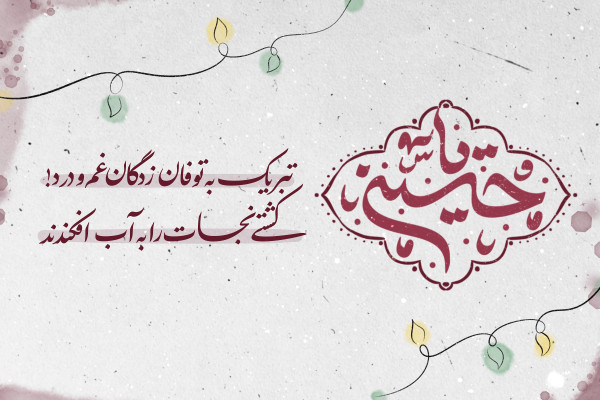 تبریک به توفان زدگان غم و درد!
کشتی نجات را به آب افکندند